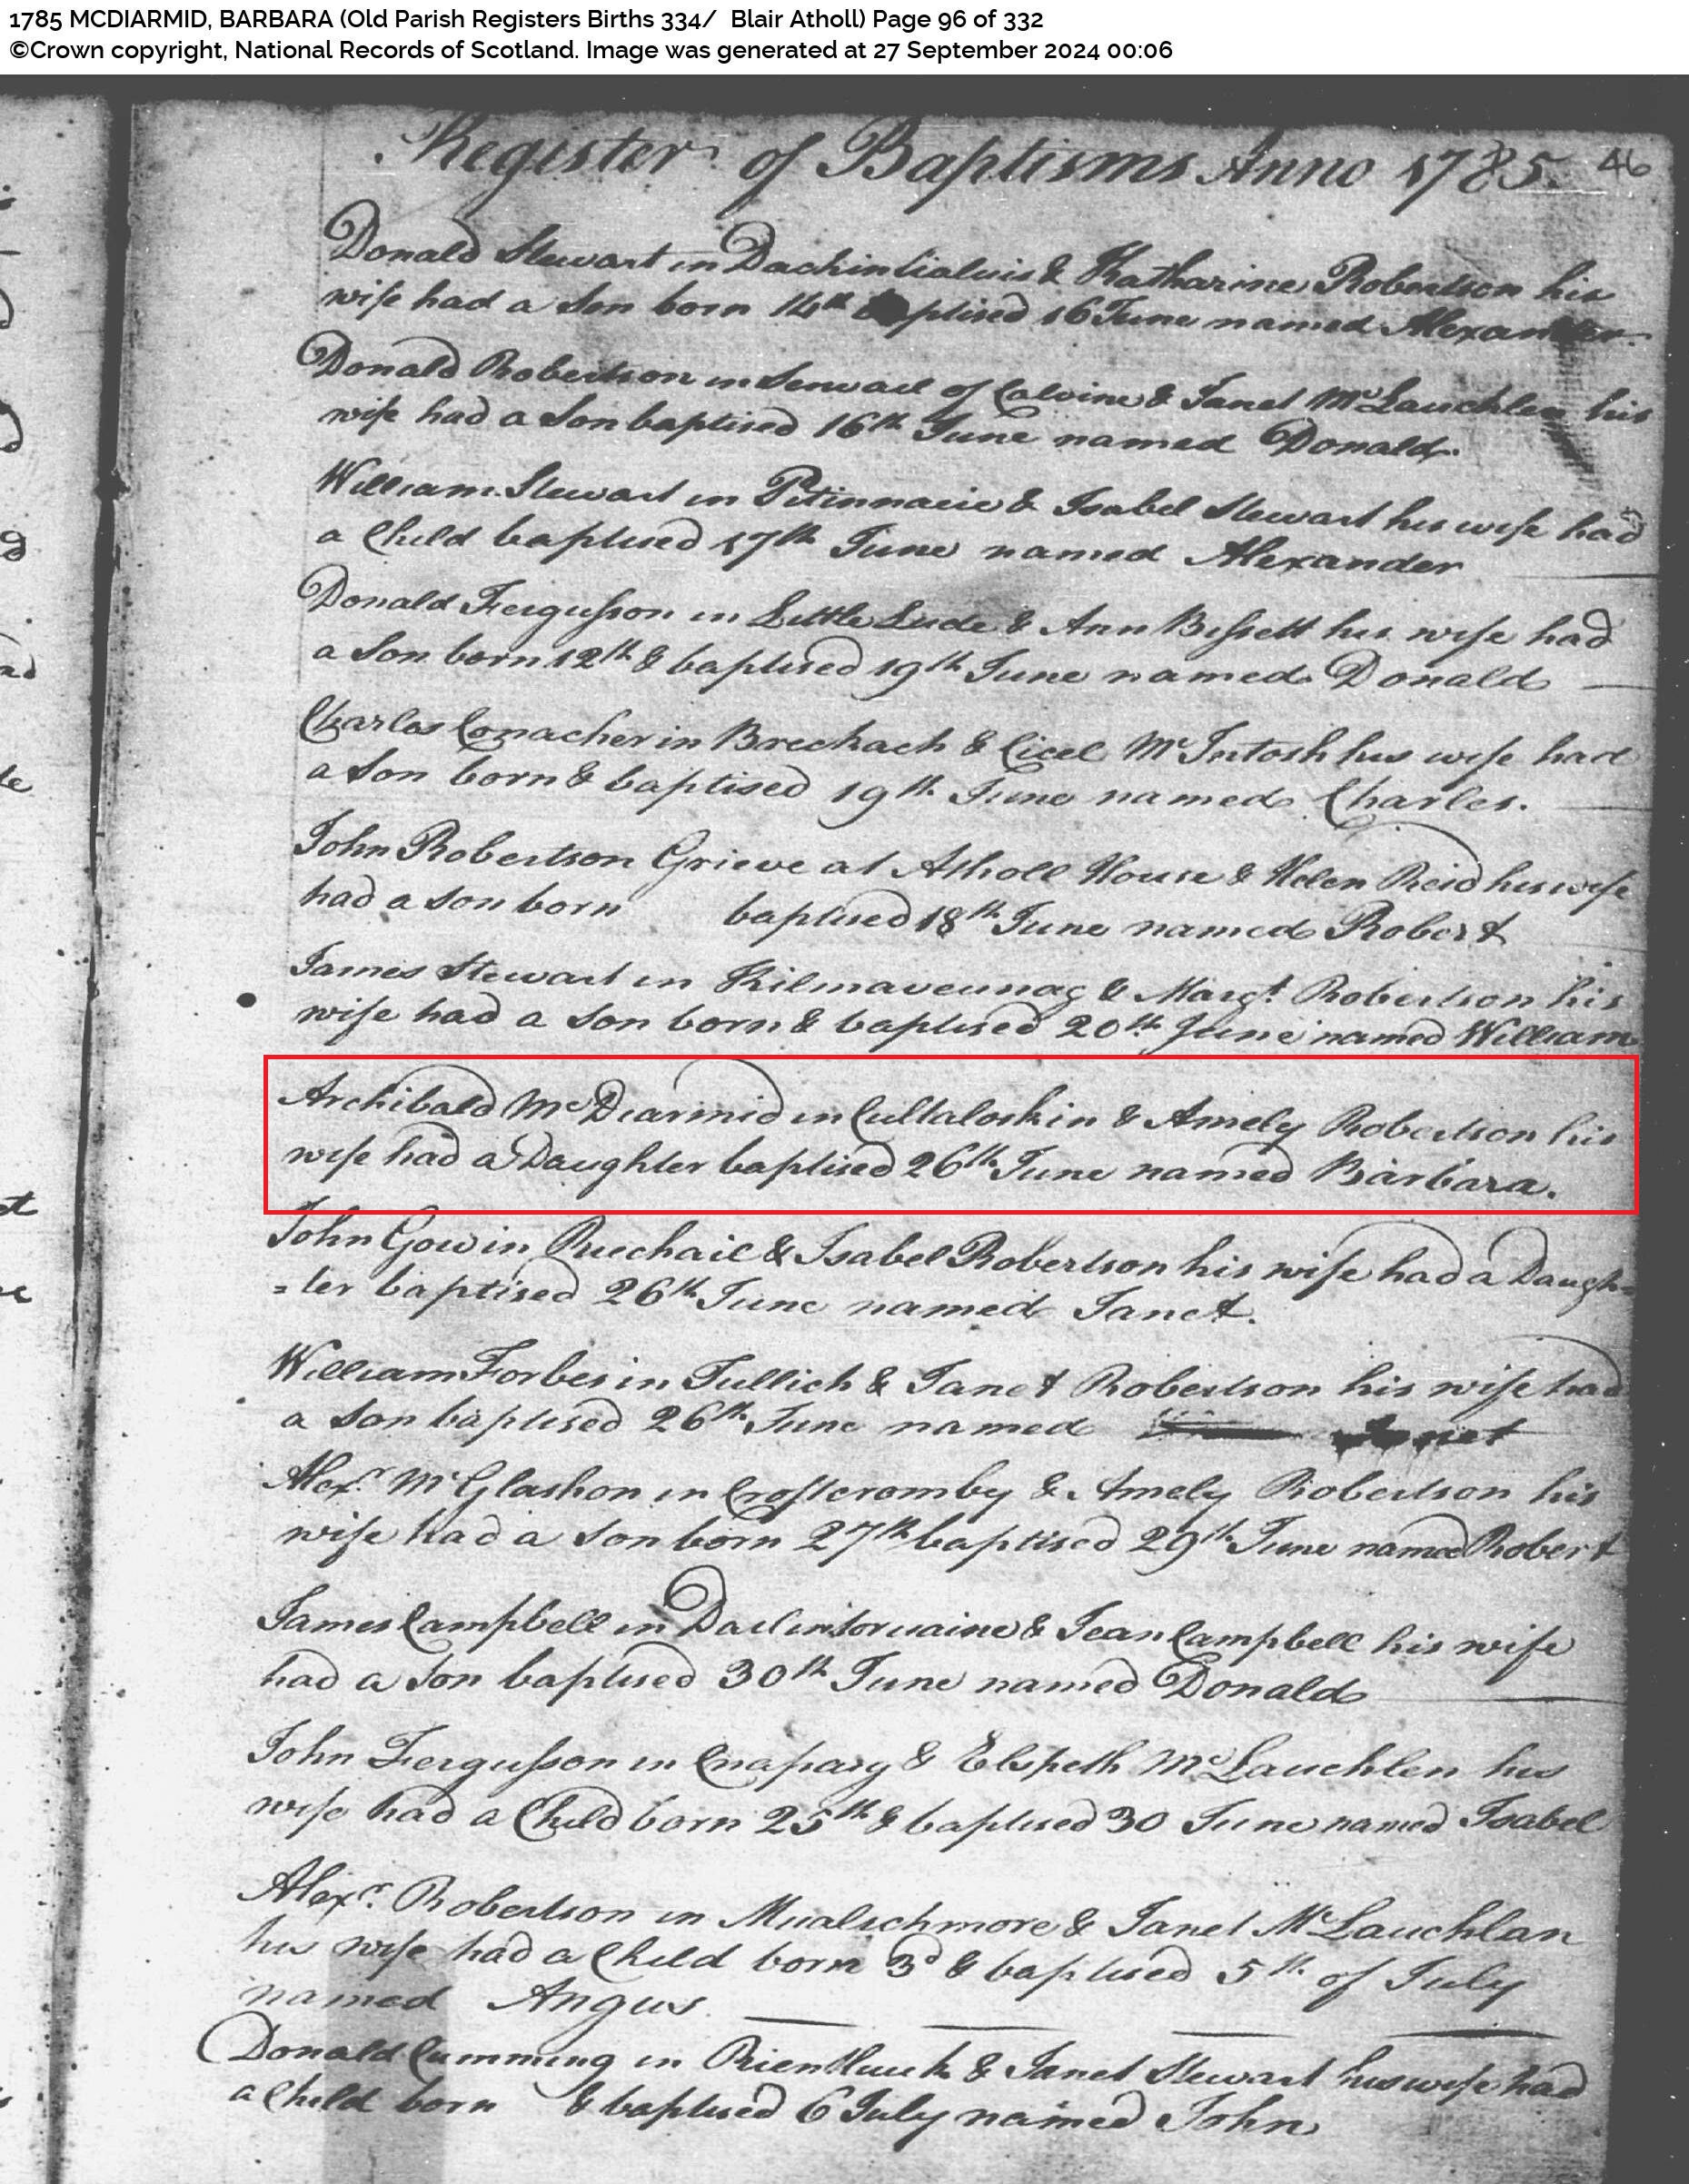 1785 MCDIARMID, BARBARA (Old Parish Registers Births 334/ Blair Atholl) Page 96 of 332
©Crown copyright, National Records of Scotland. Image was generated at 27 September 2024 00:06
Register of Baptisms Anno 1785. 46
Donald Stewart in & Katharine Robertson his
wife had a Son born 14th baptised 16 June named Alexander.
Donald Robertson in of Calvine & Janet McLauchlen his
wife had a Son baptised 16th June named Donald.
William Stewart in & Isabel Stewart his wife had
a Child baptised 17th June named Alexander
Donald Fergusson in Little Lude & Ann Bissett his wife had
a Son born 12th & baptised 19th June named Donald
Charles Conacher in Brechach & Cicel McIntosh his wife had
a Son born & baptised 19th June named Charles.
John Robertson Grieve at Atholl House & Helen Reid his wife
had a Son born baptised 18th June named Robert
James Stewart in Kilmaveunag & Margt. Robertson his
wife had a Son born & baptised 20th June named William
Archibald McDiarmid in Cultaloskin & Amely Robertson his
wife had a Daughter baptised 26th June named Barbara.
John Gow in Ruechail & Isabel Robertson his wife had a Daugh=
=ter baptised 26th June named Janet.
William Forbes in Tullich & Janet Robertson his wife had
a Son baptised 26th June named
Alexr. McGlashon in Croftcromby & Amely Robertson his
wife had a Son born 27th baptised 29th June named Robert
James Campbell in & Jean Campbell his wife
had a Son baptised 30th June named Donald
John Fergusson in & Elspeth McLauchlen his
wife had a Child born 25th & baptised 30 June named Isabel
Alexr. Robertson in Mualichmore & Janet McLauchlan
his wife had a Child born 3d & baptised 5th of July
named Angus
Donald Cumming in & Janet Stewart his wife had
a Child born & baptised 6 July named John